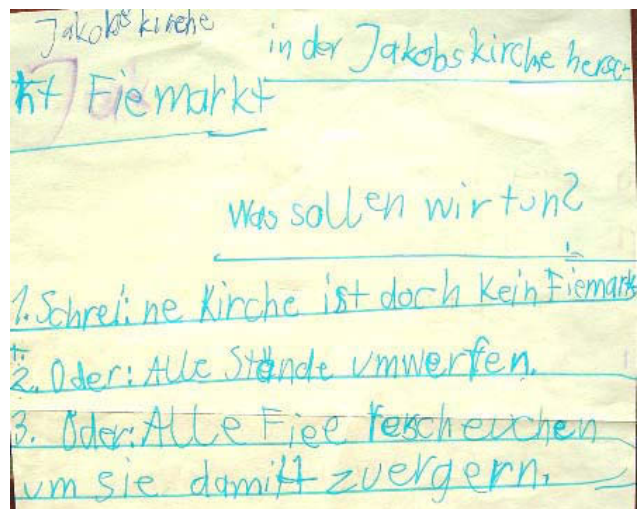 Jakobskirche
in der Jakobskirche hersc-
ht Fiemarkt
Was sollen wir tun?
1. Schrei: ne Kirche ist doch kein Fiemarkt
2. Oder: Alle Stände umwerfen.
3. Oder: Alle Fiee fescheuchen
um sie damitt zuergern.